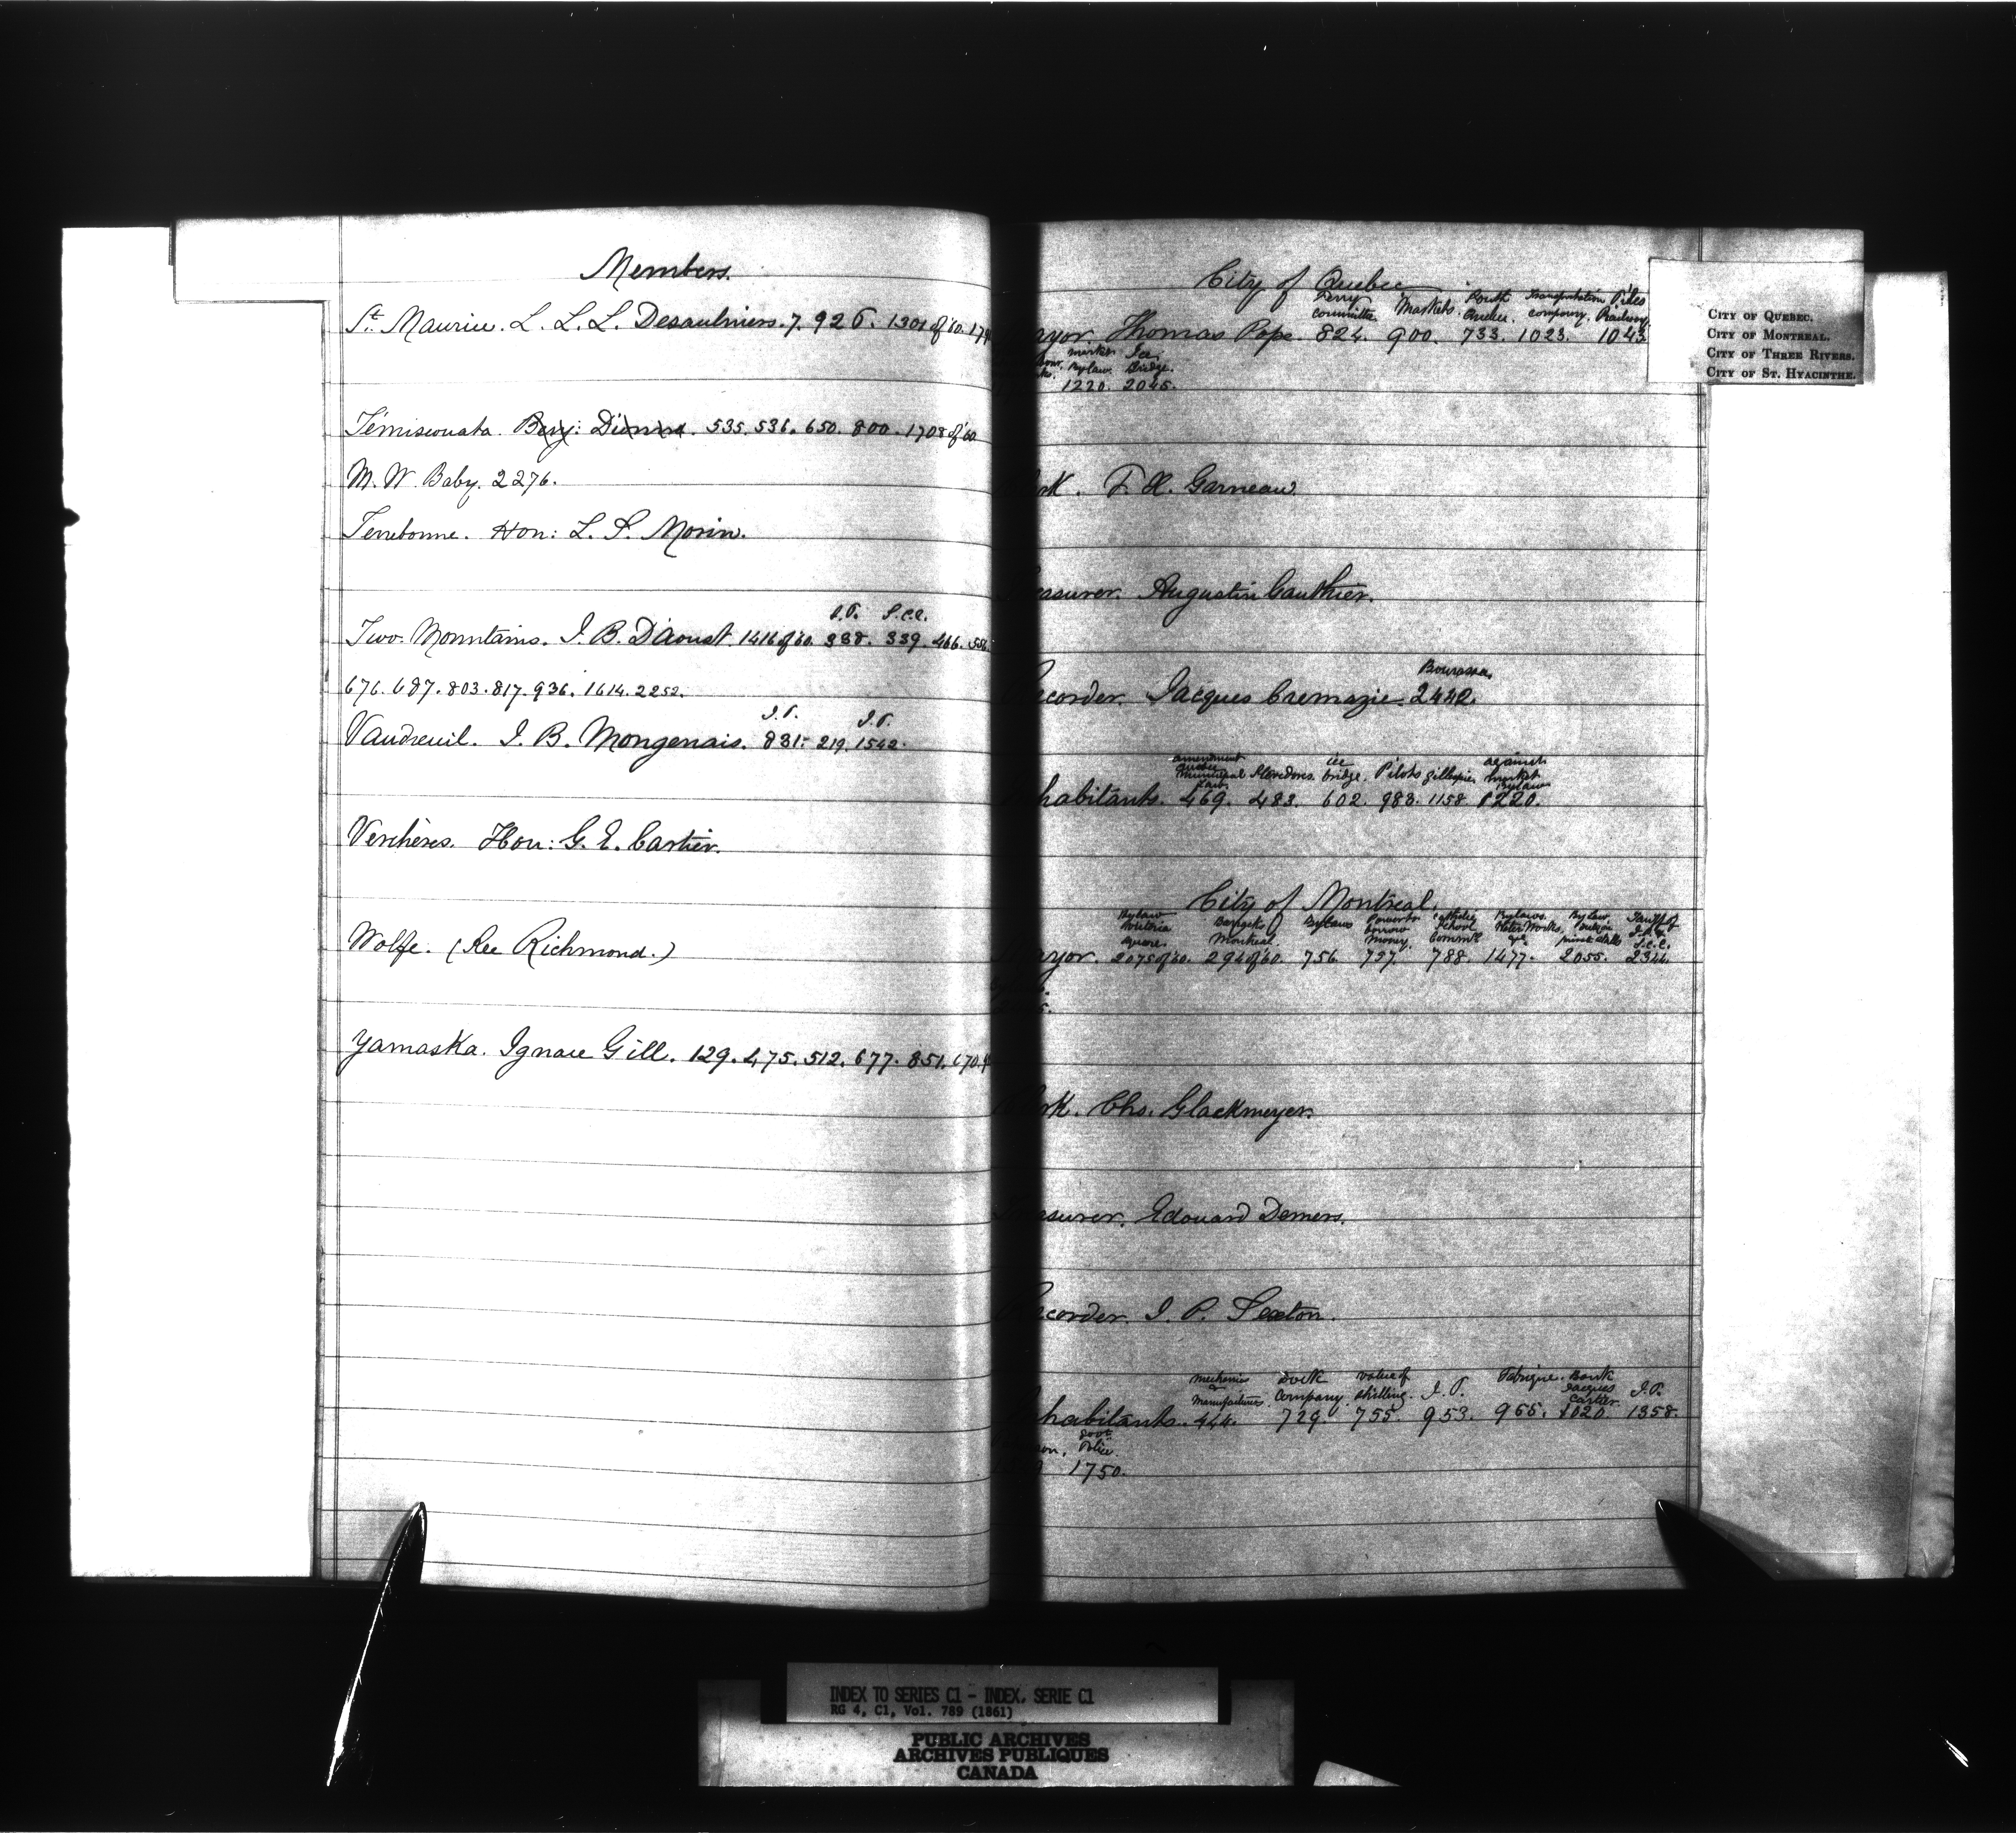 Members.
St. Maurice. L. L. L. Desaulniers. 7. 926. 1301 of '60. 179
Témiscouata. Benj: Dionne. 535. 536. 650. 800. 1708 of '60
M. W. Baby. 2276.
Terrebonne. Hon: L. S. Morin.
J.P. S.C.C.
Two-Mountains. J. B. Daoust. 1416 of '60. 338. 339. 466. 556
676. 687. 803. 817. 936. 1614. 2252.
J.P. J.P.
Vaudreuil. J. B. Mongenais. 831. 219. 1542.
Verchères. Hon: G. E. Cartier.
Wolfe. (See Richmond.)
Yamaska. Ignace Gill. 129. 475. 512. 677. 851. 670.
City of Quebec
Ferry committee. Markets. South Quebec. Transportation company. Piles Railway.
ayor. Thomas Pope. 824. 900. 733. 1023. 1043
market Bylaw. Ice Bridge.
1220. 2045.
rk. F. X. Garneau.
easurer. Augustin Gauthier.
Bourassa.
ecorder. Jacques Cremazie. 2442.
amendment Quebec Municipal Law. Stevedores. ice bridge. Pilots gillespie. against market Bylaw
habitants. 469. 483. 602. 983. 1158. 1220.
City of Montreal.
Bylaw Victoria square. Barracks Montreal. Bylaws Power to borrow money. Catholic School Comm. Bylaws. Water Works &c. By Law private stalls Tariff of J.P. & S.C.C.
ayor. 2075 of '60. 294 of '60. 756. 757. 788. 1477. 2055. 2344.
erk. Chs. Glackmeyer.
easurer. Edouard Demers.
ecorder. J. P. Sexton.
mechanics & manufactures. Dock Company. value of shilling. J. P. Fabrique. Bank Jacques Cartier. J.P.
habitants. 444. 729. 755. 953. 965. 1020. 1358.
on. Govt. Police.
1750.
CITY OF QUEBEC.
CITY OF MONTREAL.
CITY OF THREE RIVERS.
CITY OF ST. HYACINTHE.
INDEX TO SERIES C1 - INDEX, SERIE C1
RG 4, C1, Vol. 789 (1861)
PUBLIC ARCHIVES
ARCHIVES PUBLIQUES
CANADA